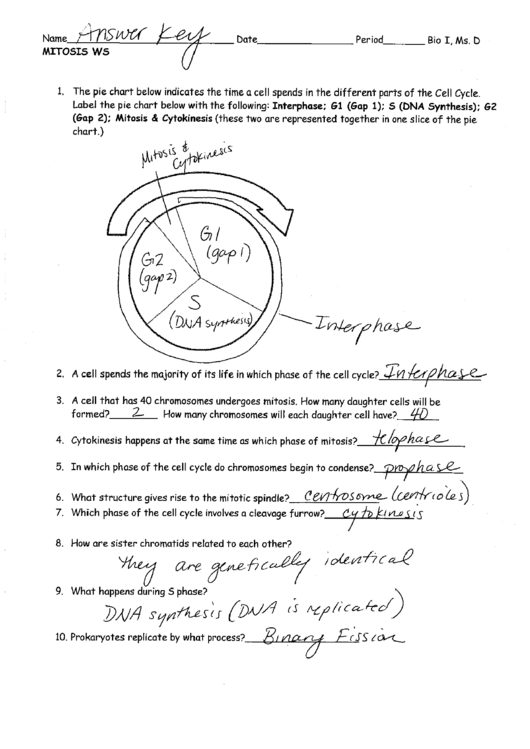 Name Answer Key Date Period Bio I, Ms. D
MITOSIS WS
1. The pie chart below indicates the time a cell spends in the different parts of the Cell Cycle.
Label the pie chart below with the following: Interphase; G1 (Gap 1); S (DNA Synthesis); G2
(Gap 2); Mitosis & Cytokinesis (these two are represented together in one slice of the pie
chart.)
Mitosis &
Cytokinesis
G1
(gap 1)
G2
(gap 2)
S
(DNA synthesis)
Interphase
2. A cell spends the majority of its life in which phase of the cell cycle? Interphase
3. A cell that has 40 chromosomes undergoes mitosis. How many daughter cells will be
formed? 2 How many chromosomes will each daughter cell have? 40
4. Cytokinesis happens at the same time as which phase of mitosis? telophase
5. In which phase of the cell cycle do chromosomes begin to condense? prophase
6. What structure gives rise to the mitotic spindle? Centrosome (centrioles)
7. Which phase of the cell cycle involves a cleavage furrow? cytokinesis
8. How are sister chromatids related to each other?
They are genetically identical
9. What happens during S phase?
DNA synthesis (DNA is replicated)
10. Prokaryotes replicate by what process? Binary Fission